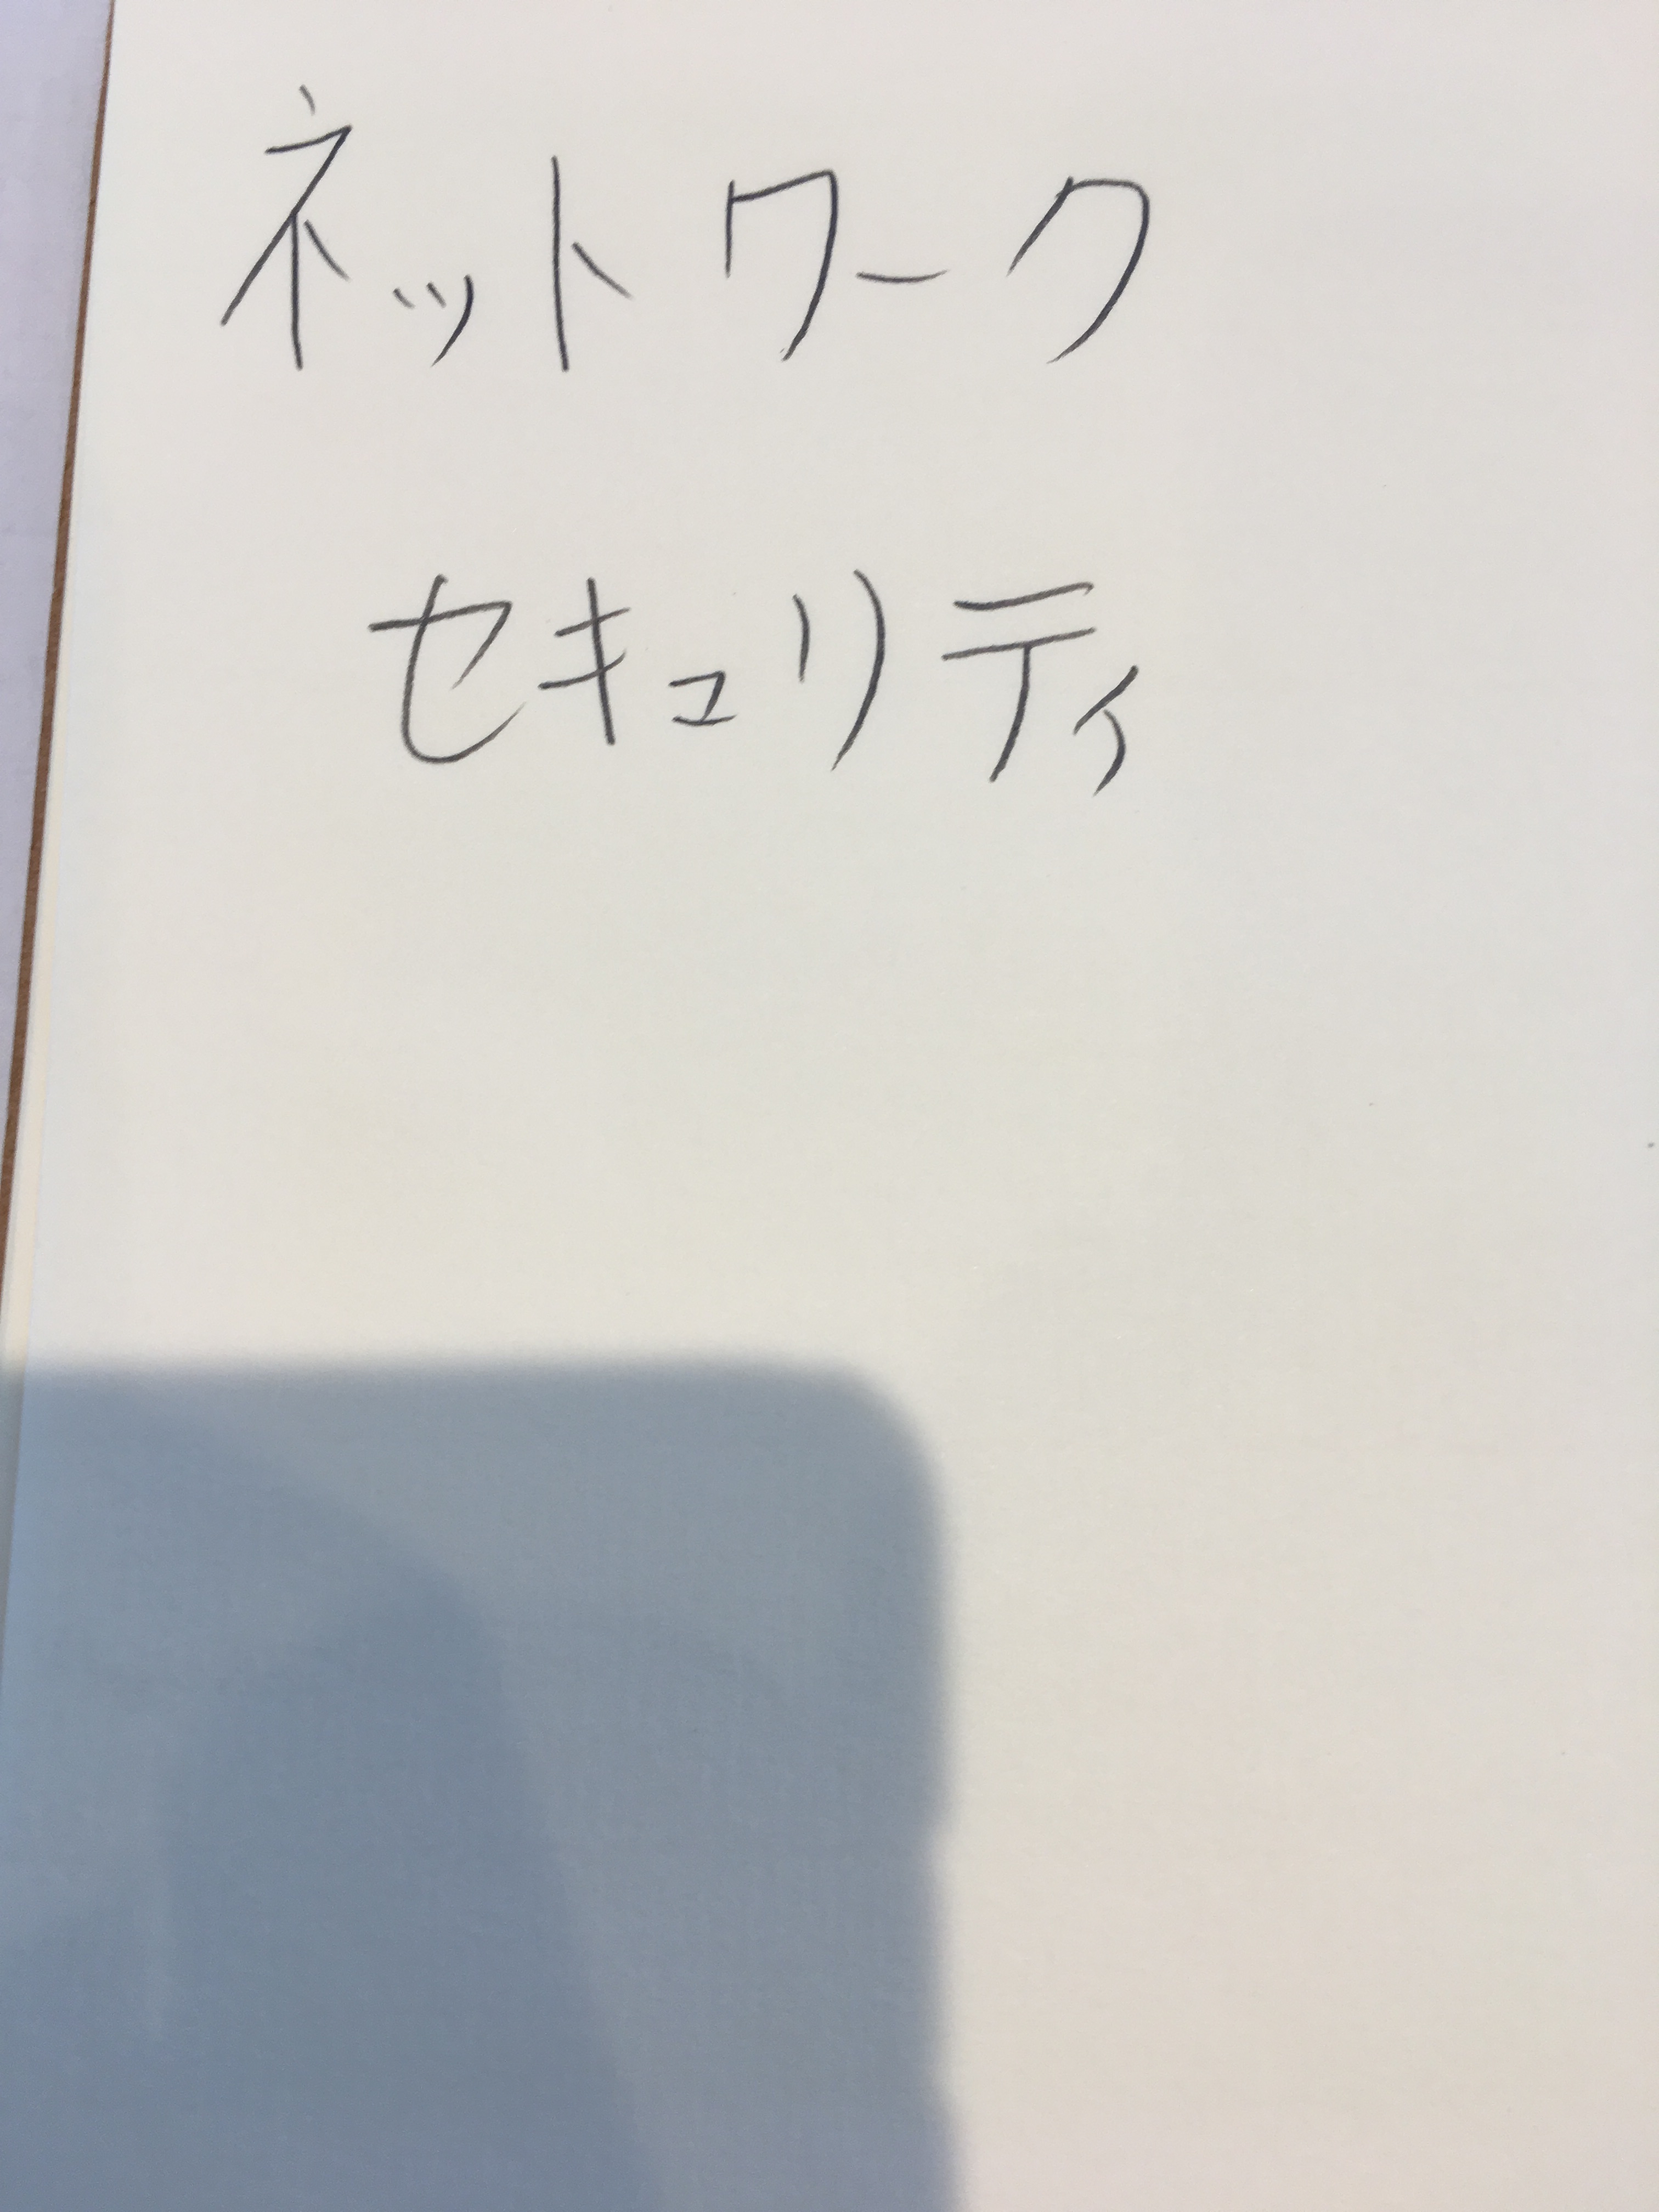 ネットワーク
セキュリティ